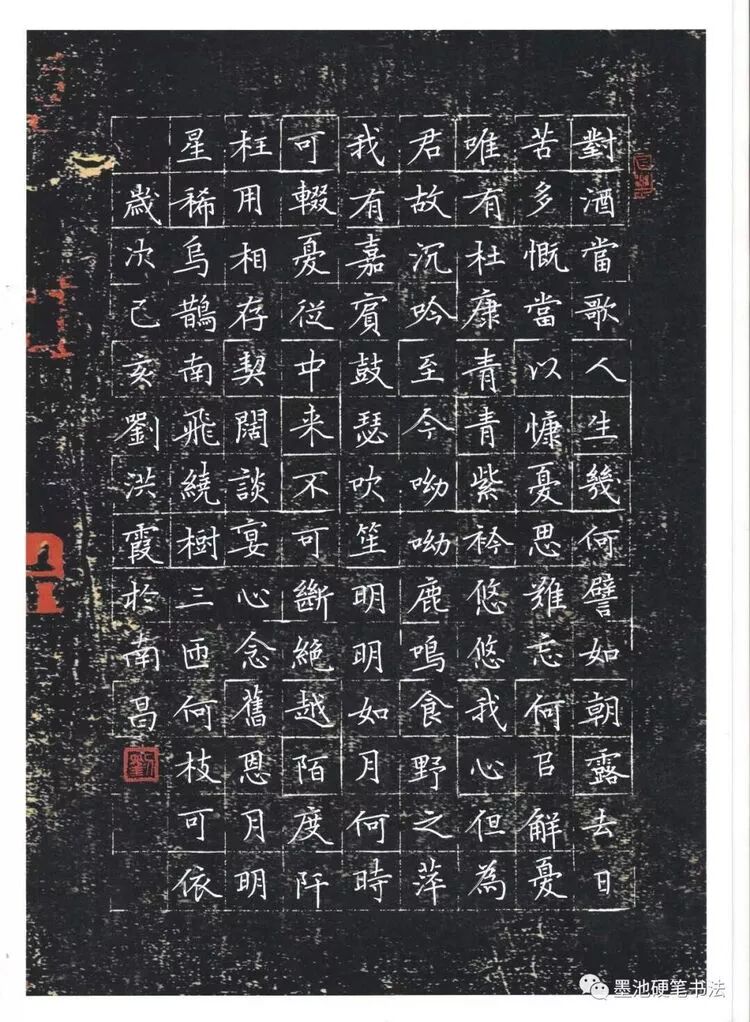 對酒當歌人生幾何譬如朝露去日
苦多慨當以慷憂思難忘何㠯解憂
唯有杜康青青紫衿悠悠我心但為
君故沉吟至今呦呦鹿鳴食野之萍
我有嘉賓鼓瑟吹笙明明如月何時
可輟憂從中来不可斷絕越陌度阡
枉用相存契闊談宴心念舊恩月明
星稀烏鵲南飛繞樹三匝何枝可依
歲次己亥劉洪霞於南昌
墨池硬笔书法